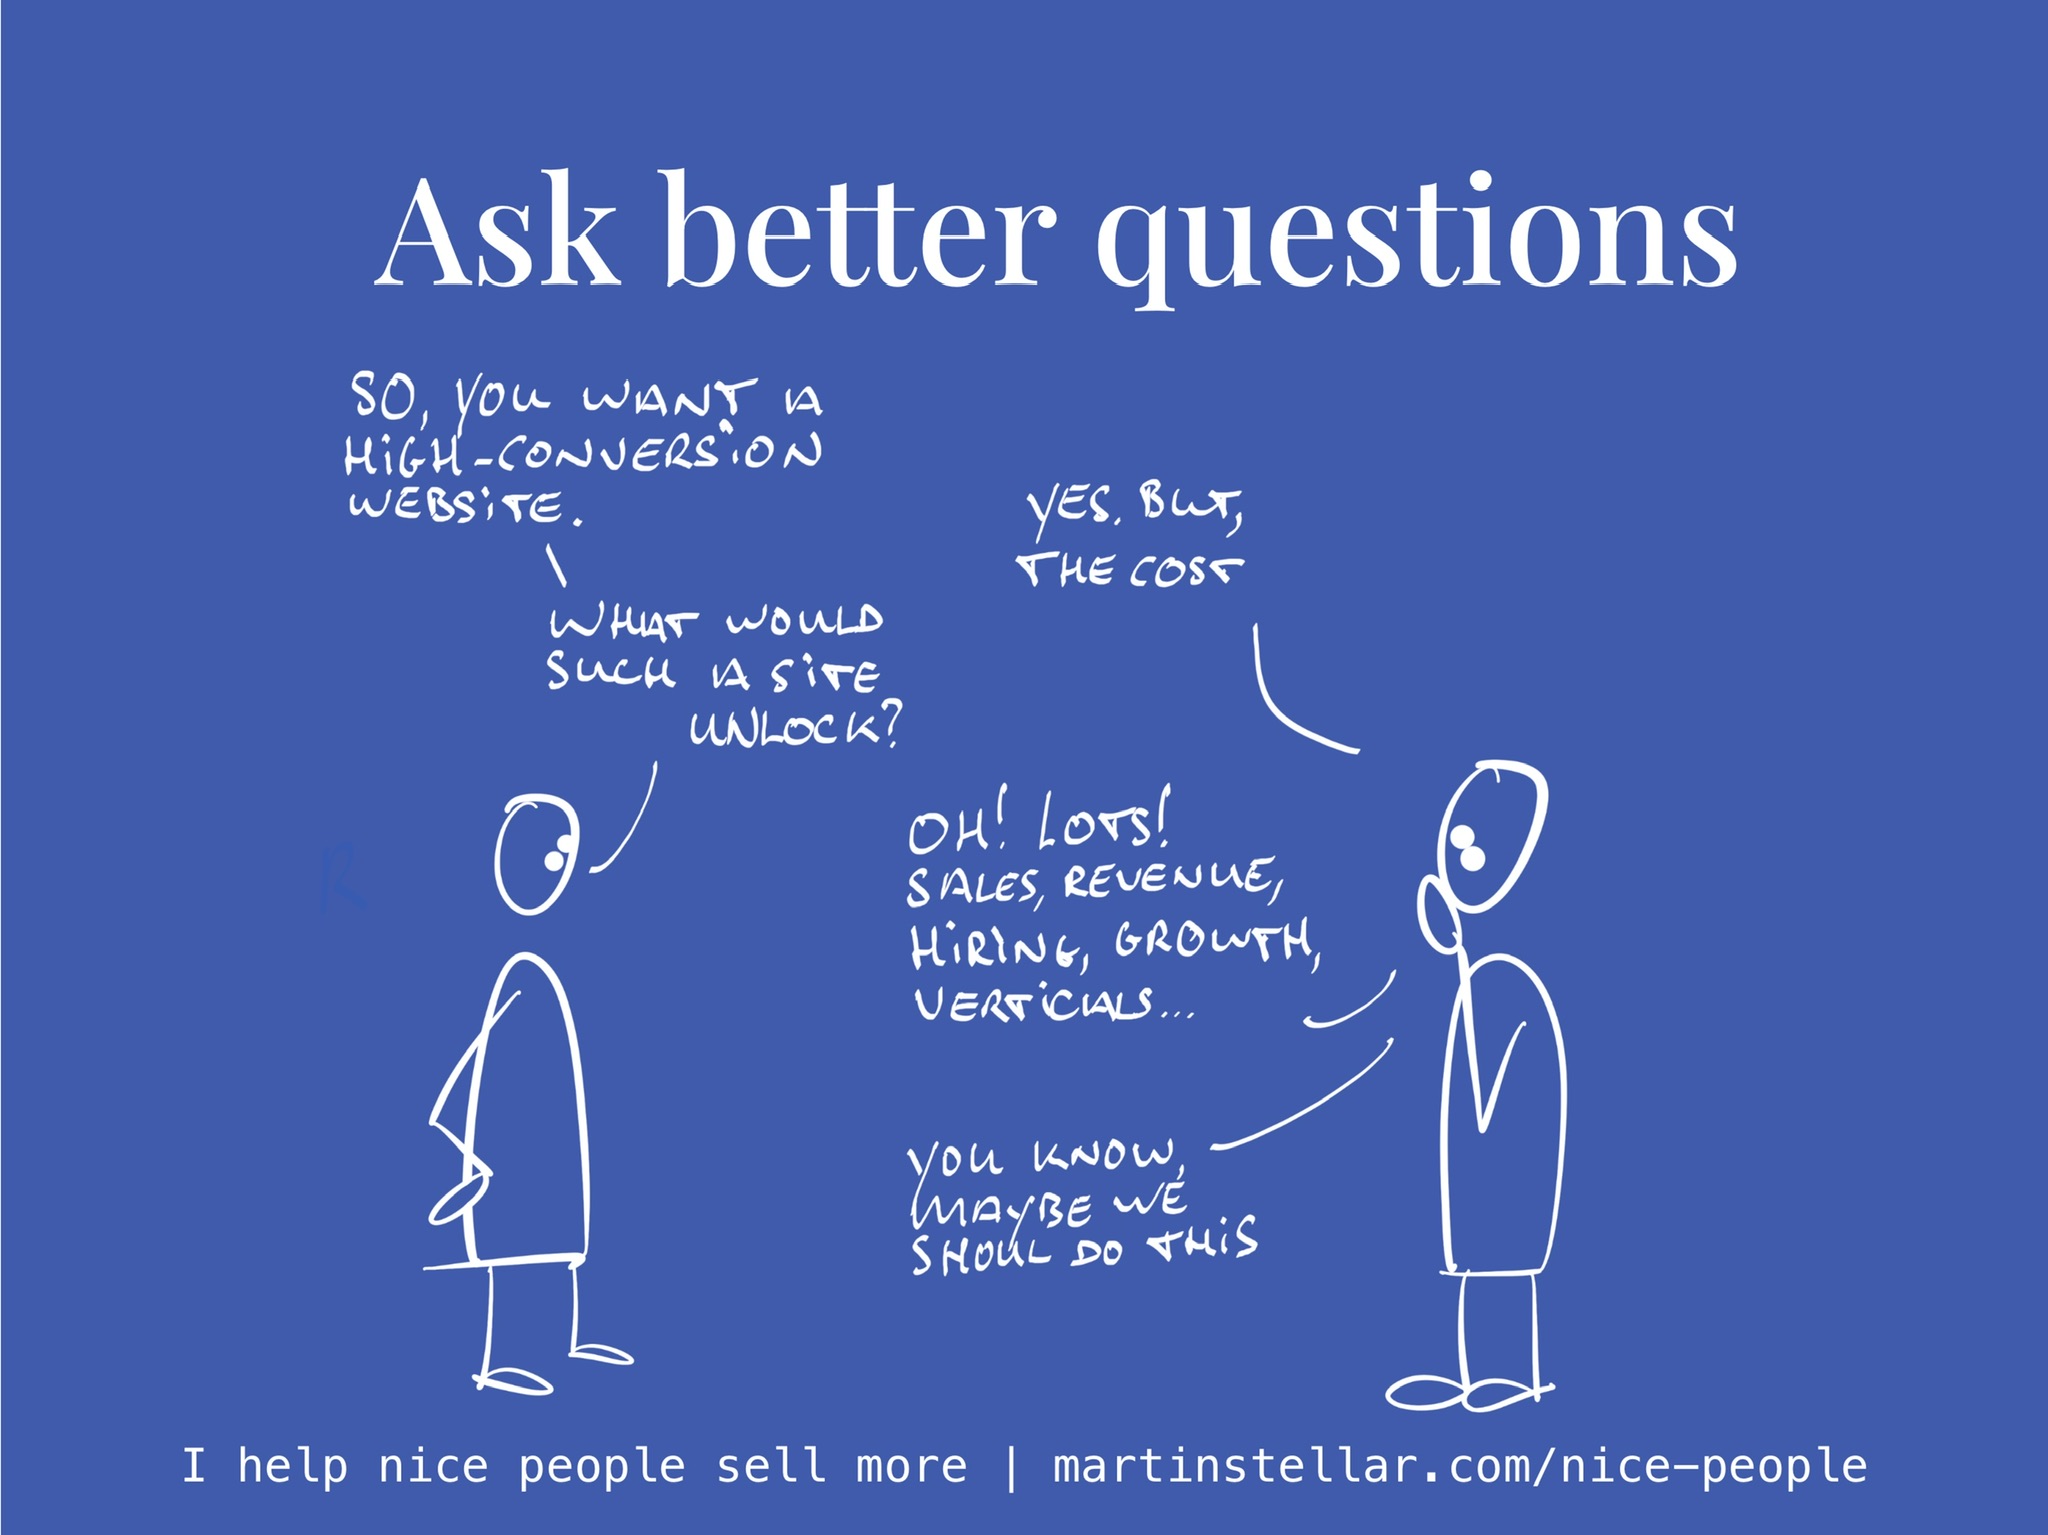 Ask better questions
SO, YOU WANT A
HIGH-CONVERSION
WEBSITE.
WHAT WOULD
SUCH A SITE
UNLOCK?
YES. BUT,
THE COST
OH! LOTS!
SALES, REVENUE,
HIRING, GROWTH,
VERTICIALS...
YOU KNOW,
MAYBE WE
SHOUL DO THIS
R
I help nice people sell more | martinstellar.com/nice-people